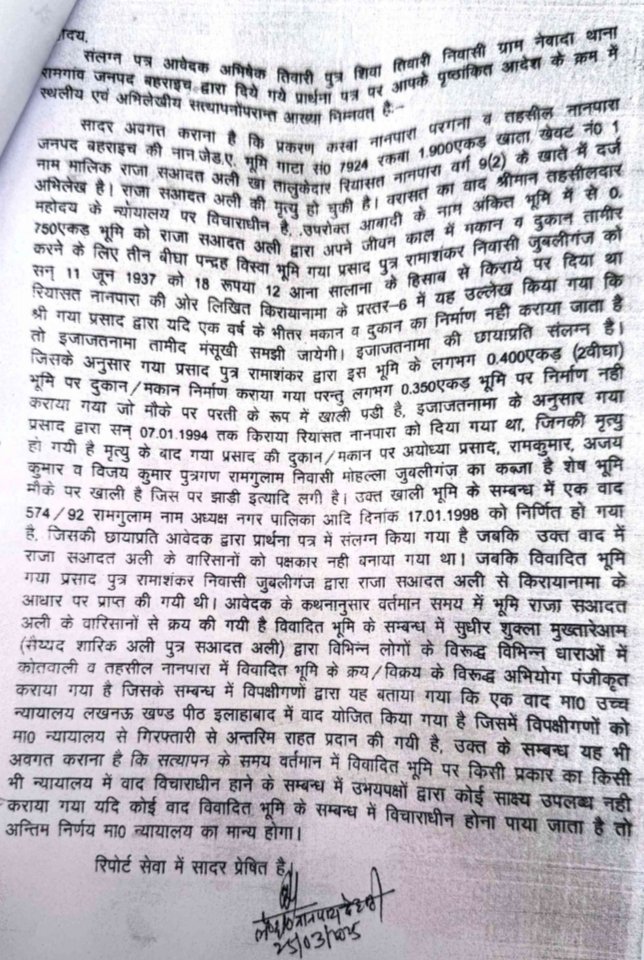 दय,
संलग्न पत्र आवेदक अभिषेक तिवारी पुत्र शिवा तिवारी निवासी ग्राम नेवादा थाना
रामगांव जनपद बहराइच द्वारा दिये गये प्रार्थना पत्र पर आपके पृष्ठांकित आदेश के क्रम में
स्थलीय एवं अभिलेखीय सत्यापनोंपरान्त आख्या निम्नवत् है:-
सादर अवगत कराना है कि प्रकरण कस्बा नानपारा परगना व तहसील नानपारा
जनपद बहराइच की नान.जेड.ए. भूमि गाटा सं0 7924 रकबा 1.900एकड़ खाता खेवट नं0 1
नाम मालिक राजा सआदत अली खां तालुकेदार रियासत नानपारा वर्ग 9(2) के खाते में दर्ज
अभिलेख है। राजा सआदत अली की मृत्यु हो चुकी है। वरासत का वाद श्रीमान तहसीलदार
महोदय के न्यायालय पर विचाराधीन है, .उपरोक्त आबादी के नाम अंकित भूमि में से 0.
750एकड़ भूमि को राजा सआदत अली द्वारा अपने जीवन काल में मकान व दुकान तामीर
करने के लिए तीन बीघा पन्द्रह विस्वा भूमि गया प्रसाद पुत्र रामाशंकर निवासी जुबलीगंज को
सन् 11 जून 1937 को 18 रूपया 12 आना सालाना के हिसाब से किराये पर दिया था
रियासत नानपारा की ओर लिखित किरायानामा के प्रस्तर-6 में यह उल्लेख किया गया कि
श्री गया प्रसाद द्वारा यदि एक वर्ष के भीतर मकान व दुकान का निर्माण नही कराया जाता है
तो इजाजतनामा तामीद मंसूखी समझी जायेगी। इजाजतनामा की छायाप्रति संलग्न है।
जिसके अनुसार गया प्रसाद पुत्र रामाशंकर द्वारा इस भूमि के लगभग 0.400एकड़ (2वीघा)
भूमि पर दुकान/मकान निर्माण कराया गया परन्तु लगभग 0.350एकड़ भूमि पर निर्माण नही
कराया गया जो मौके पर परती के रूप में खाली पडी है, इजाजतनामा के अनुसार गया
प्रसाद द्वारा सन् 07.01.1994 तक किराया रियासत नानपारा को दिया गया था, जिनकी मृत्यु
हो गयी है मृत्यु के बाद गया प्रसाद की दुकान/मकान पर अयोध्या प्रसाद, रामकुमार, अजय
कुमार व विजय कुमार पुत्रगण रामगुलाम निवासी मोहल्ला जुबलीगंज का कब्जा है शेष भूमि
मौके पर खाली है जिस पर झाडी इत्यादि लगी है। उक्त खाली भूमि के सम्बन्ध में एक वाद
574/92 रामगुलाम नाम अध्यक्ष नगर पालिका आदि दिनांक 17.01.1998 को निर्णित हो गया
है, जिसकी छायाप्रति आवेदक द्वारा प्रार्थना पत्र में संलग्न किया गया है जबकि उक्त वाद में
राजा सआदत अली के वारिसानों को पक्षकार नही बनाया गया था। जबकि विवादित भूमि
गया प्रसाद पुत्र रामाशंकर निवासी जुबलीगंज द्वारा राजा सआदत अली से किरायानामा के
आधार पर प्राप्त की गयी थी। आवेदक के कथनानुसार वर्तमान समय में भूमि राजा सआदत
अली के वारिसानों से क्रय की गयी है विवादित भूमि के सम्बन्ध में सुधीर शुक्ला मुख्तारेआम
(सैय्यद शारिक अली पुत्र सआदत अली) द्वारा विभिन्न लोगों के विरूद्ध विभिन्न धाराओं में
कोतवाली व तहसील नानपारा में विवादित भूमि के क्रय/विक्रय के विरूद्ध अभियोग पंजीकृत
कराया गया है जिसके सम्बन्ध में विपक्षीगणों द्वारा यह बताया गया कि एक वाद मा0 उच्च
न्यायालय लखनऊ खण्ड पीठ इलाहाबाद में वाद योजित किया गया है जिसमें विपक्षीगणों को
मा0 न्यायालय से गिरफ्तारी से अन्तरिम राहत प्रदान की गयी है, उक्त के सम्बन्ध यह भी
अवगत कराना है कि सत्यापन के समय वर्तमान में विवादित भूमि पर किसी प्रकार का किसी
भी न्यायालय में वाद विचाराधीन हाने के सम्बन्ध में उभयपक्षों द्वारा कोई साक्ष्य उपलब्ध नही
कराया गया यदि कोई वाद विवादित भूमि के सम्बन्ध में विचाराधीन होना पाया जाता है तो
अन्तिम निर्णय मा0 न्यायालय का मान्य होगा।
रिपोर्ट सेवा में सादर प्रेषित है।
25/03/2025